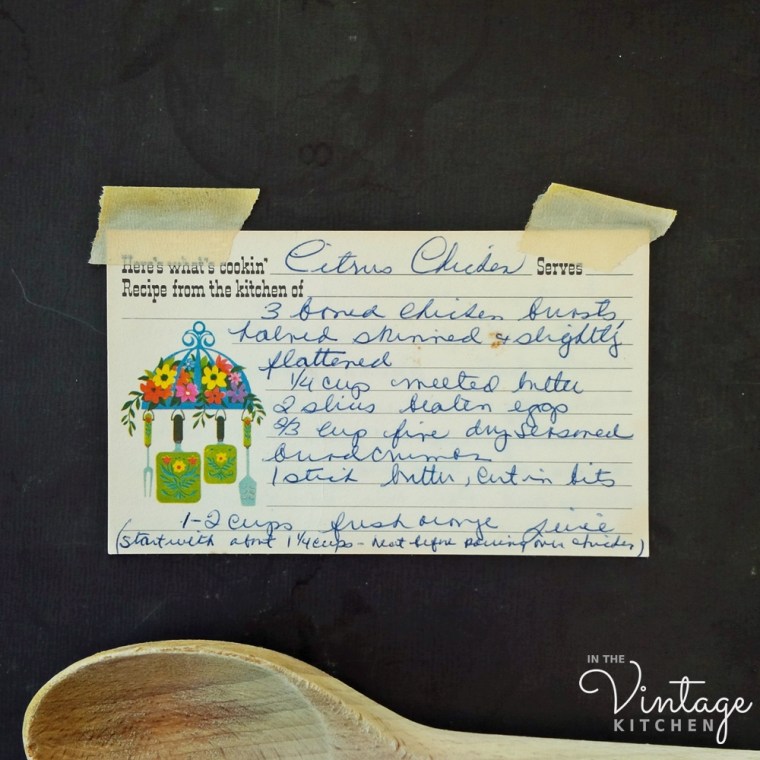 Here's what's cookin' Citrus Chicken Serves
Recipe from the kitchen of
3 boned chicken breasts,
halved skinned & slightly
flattened
1/4 cup melted butter
2 slices beaten eggs
2/3 cup fine dry seasoned
breadcrumbs
1 stick butter, cut in bits
1-2 cups fresh orange juice
(start with about 1 1/4 cups - heat before pouring over chicken)
IN THE
Vintage
KITCHEN